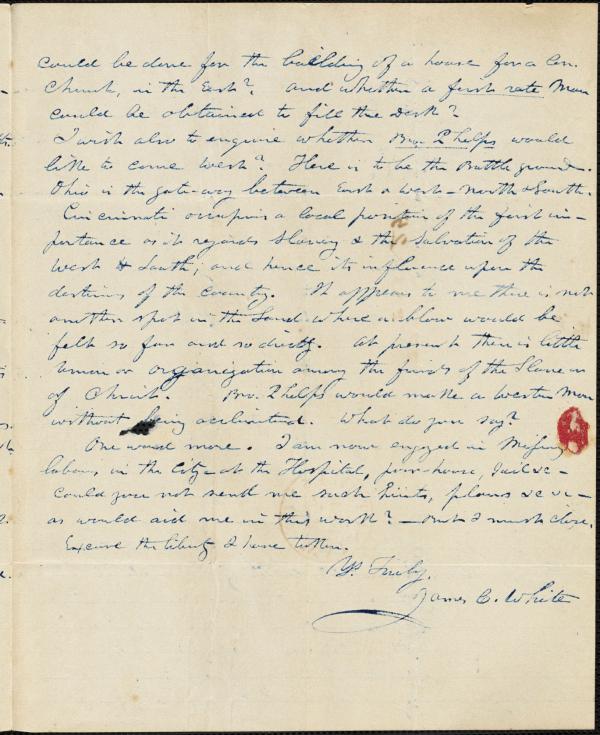 could be done for the building of a house for a Con.
Church, in the East? and whether a first rate Man
could be obtained to fill the desk?
I wish also to enquire whether Bro. Phelps would
like to come West? Here is to be the Battle ground.
Ohio is the gate-way between East & West - North & South.
Cincinnati occupies a local position of the first im-
portance as it regards Slavery & the Salvation of the
West & South; and hence its influence upon the
destinies of the country. It appears to me there is not
another spot in the Land where a blow would be
felt so far and so directly. At present there is little
union or organization among the friends of the Slave or
of Christ. Bro. Phelps would make a Western Man
without being acclimated. What do you say?
One word more. I am now engaged in Missionary
labour, in the City - at the Hospital, poor-house, Jail &c -
Could you not send me such hints, plans &c &c -
as would aid me in this work? - But I must close.
Excuse the liberty I have taken.
Yrs. Truly,
James C. White